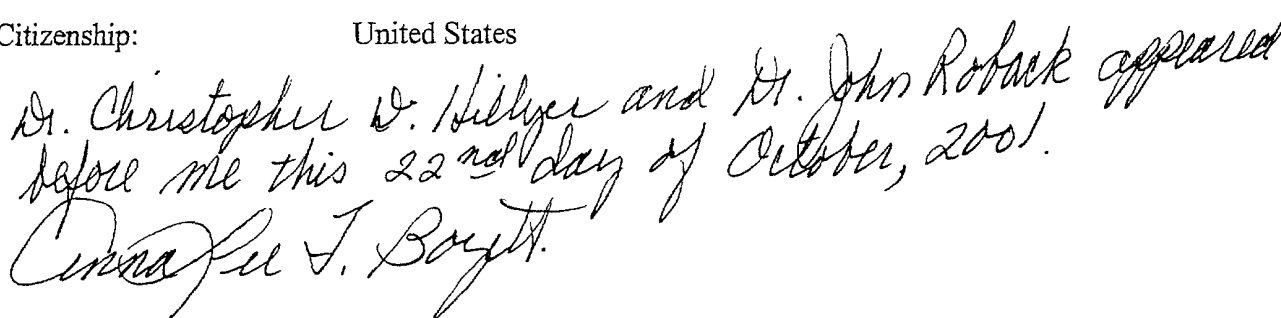 Citizenship: United States
Dr. Christopher D. Hillyer and Dr. John Roback appeared
before me this 22nd day of October, 2001.
Anna Lee T. Bozett.